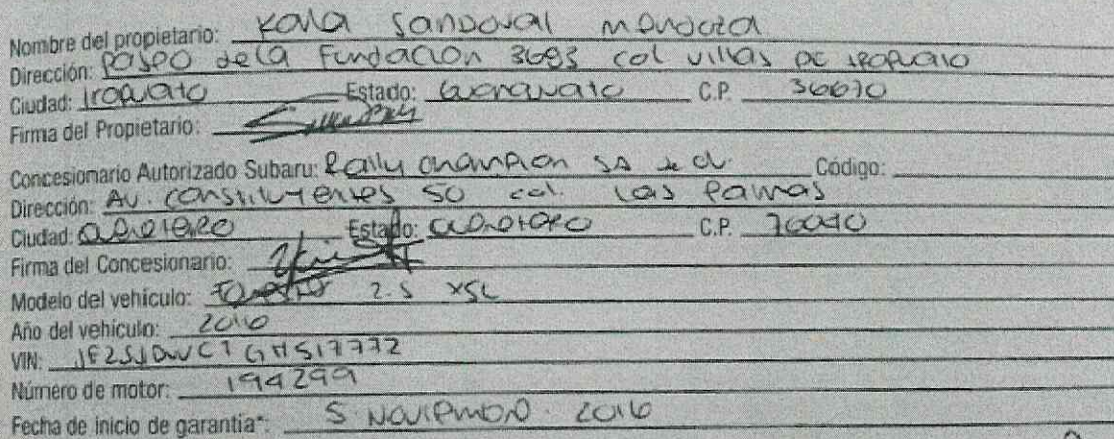 Nombre del propietario: Karla Sandoval Mendoza
Dirección: Paseo de la Fundación 3683 col villas de Irapuato
Ciudad: Irapuato Estado: Guanajuato C.P. 36670
Firma del Propietario:
Concesionario Autorizado Subaru: Rally Champion SA de cv. Código:
Dirección: Av. Constituyentes 50 col. Las Palmas
Ciudad: Queretero Estado: Queretaro C.P. 76040
Firma del Concesionario:
Modelo del vehículo: Forester 2.5 XSL
Año del vehículo: 2016
VIN: JF2SJDWC7GH517772
Número de motor: 194299
Fecha de inicio de garantía*: 5 Noviembre 2016